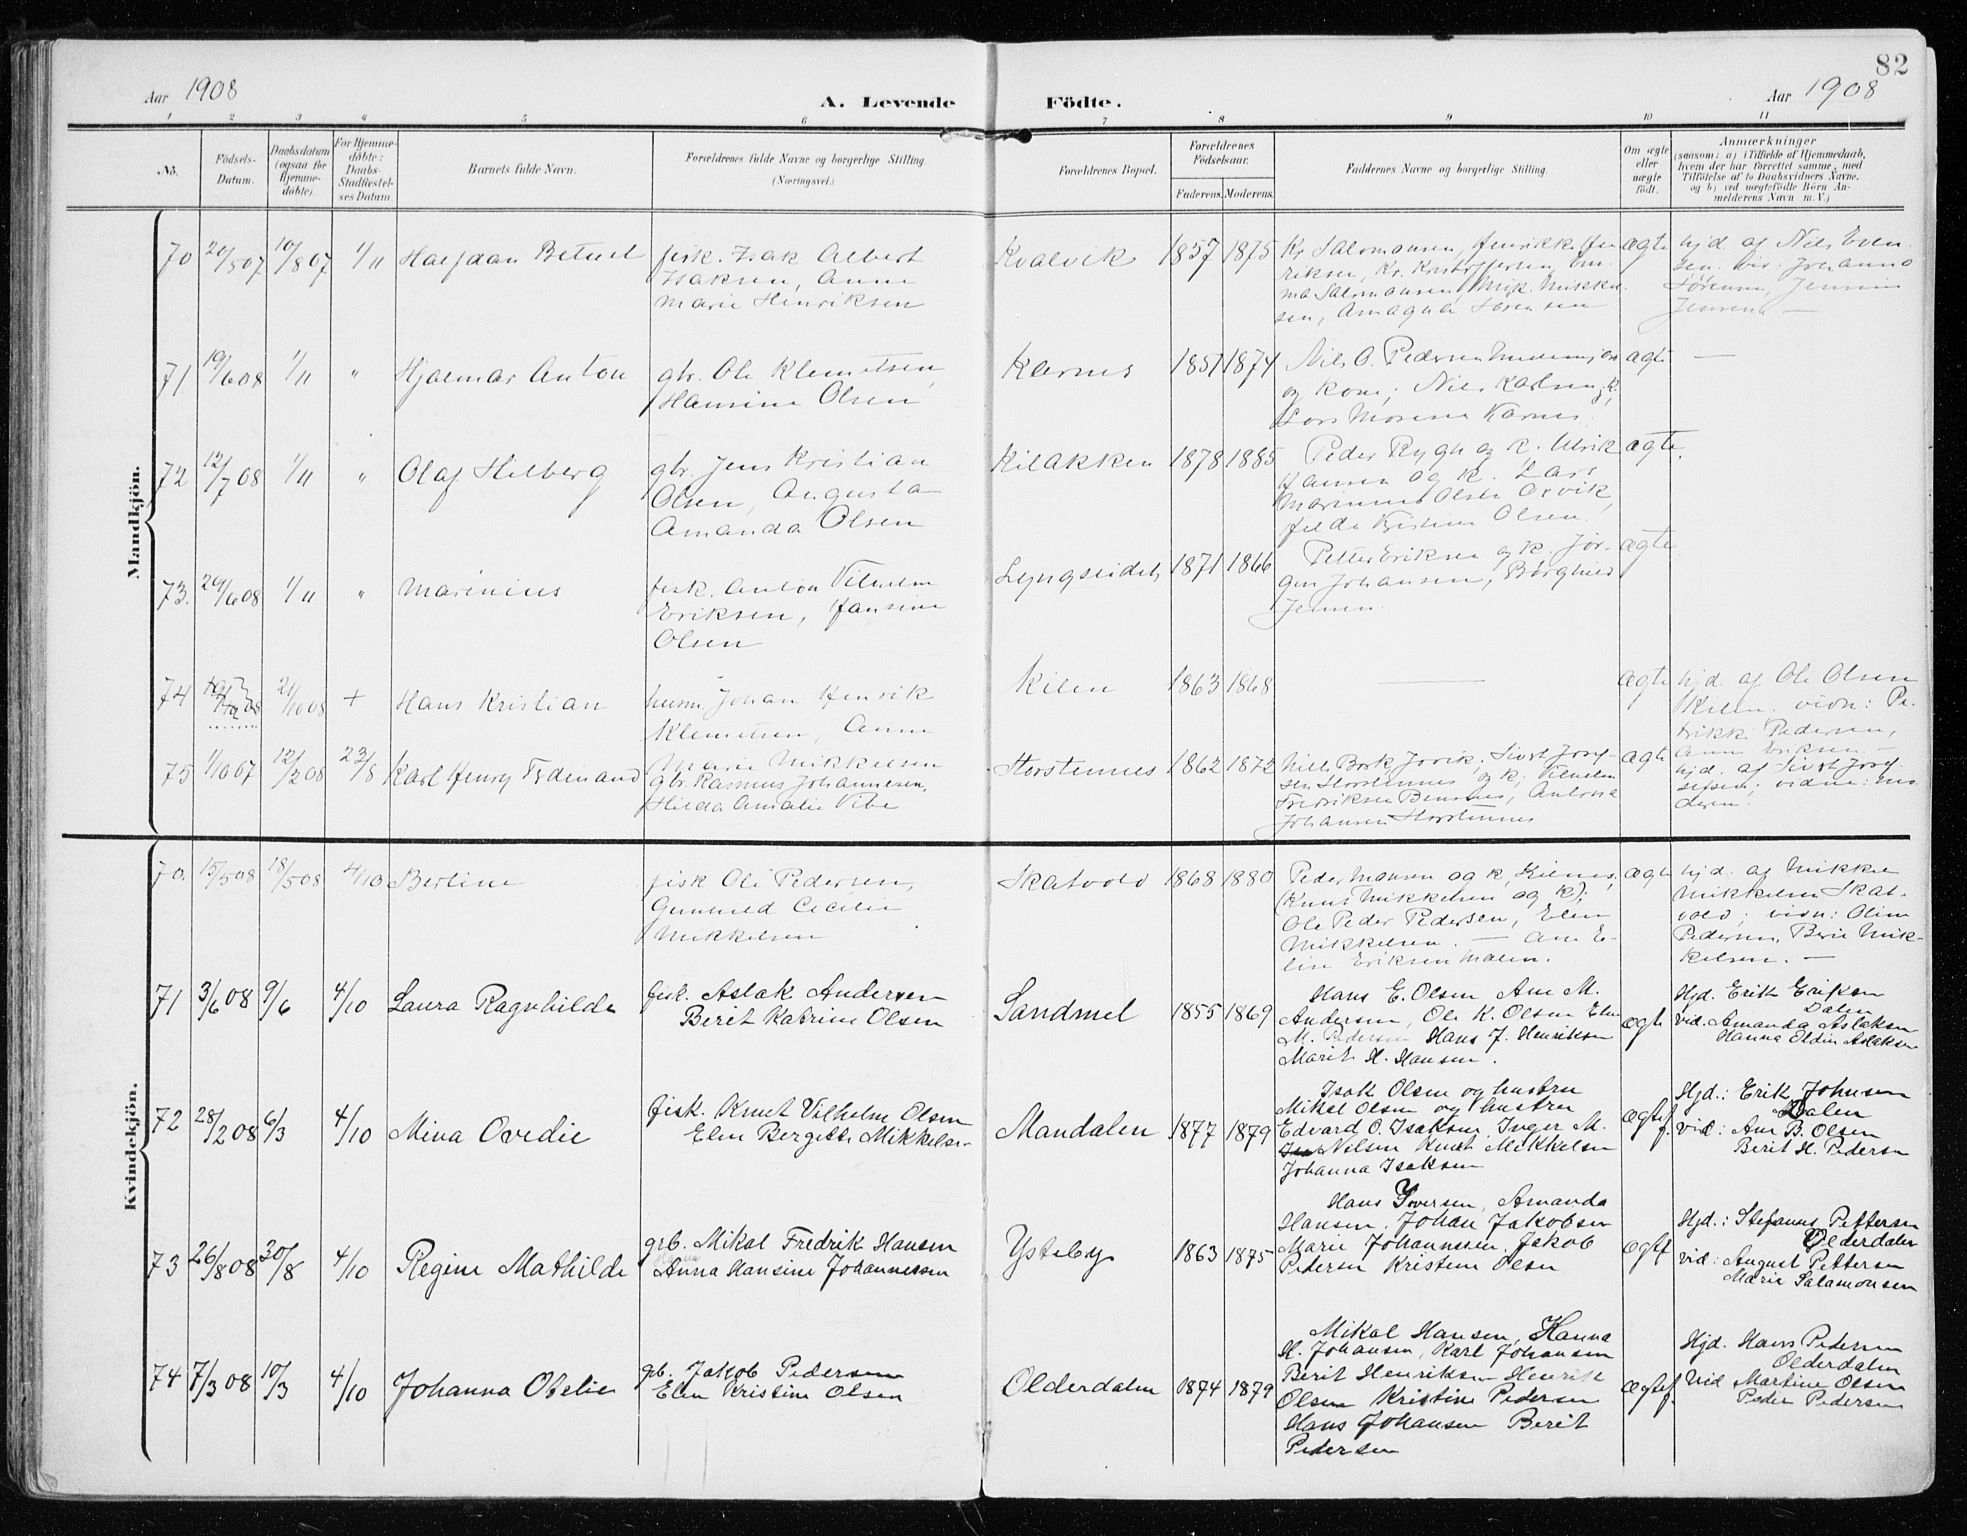 82
Aar 1908
A. Levende Födte.
Aar 1908
1 2 3 4 5 6 7 8 9 10 11
No.
Födsels-Datum.
Daabsdatum (ogsaa for Hjemme-döbte).
For Hjemme-döbte: Daabs-Stadfæstel-ses Datum.
Barnets fulde Navn.
Forældrenes fulde Navne og borgerlige Stilling. (Næringsvei.)
Forældrenes Bopæl.
Forældrenes Födselsaar.
Faderens. Moderens.
Faddernes Navne og borgerlige Stilling.
Om ægte eller uægte födt.
Anmærkninger
(saasom: a) i Tilfælde af Hjemmedaab, hvem der har forrettet samme, med Tilföielse af to Daabsvidners Navne, og b) ved uægtefödte Börn An-melderens Navn m. V.)
Mandkjön.
70 20/5 07 10/8 07 1/11 Halfdan Betuel
fisk. Isak Albert
Isaksen, Anne
Marie Henriksen
Kvalvik 1857 1875
Kr. Salomonsen, Henrikke Hen
riksen, Kr. Kristoffersen, Em
ma Salomonsen, Mik. Mikkel
sen, Amagnda Sörensen
ægte
hjd. af Nils Even
sen. vid. Johanna
Sörensen, Jensine
Jensen —
71. 19/6 08 1/11 " Hjalmar Anton
gbr. Ole Klemetsen,
Hansine Olsen
Karnes 1851 1874
Nils O. Pedersen
og kone; Nils Karlsen, k.
Lars Karnes.
ægte —
72 12/7 08 1/11 " Olaf Hilberg
gbr. Jens Kristian
Olsen, Augusta
Amanda Olsen
Kilakken 1878 1885
Peder Rygh og k. Ulrik
Hansen og k. Lars
Marinius Olsen Orvik,
Kristine Olsen.
ægte.
73. 29/6 08 1/11 " Marinius
fisk. Anton Vilhelm
Eriksen, Hansine
Olsen
Lyngseidet 1871 1866
Petter Eriksen og k. Jör-
gen Johansen, Borghild
Jensen
ægte
74 21/10 08 + Hans Kristian
husm. Johan Henrik
Klemetsen, Anne
Marie Mikkelsen
Kilen 1863 1868
—
ægte
hjd. af Ole Olsen
Kilen. vidn: Pe-
trikke Pedersen,
Anne Eriksen —
75 1/10 07 12/2 08 23/8 Karl Henry Ferdinand
gbr. Rasmus Johannesen,
Hilda Amalie Vibe
Storstennes 1862 1872
Nils Bork Jovik. Sivert Josef-
sen Storstennes og k; Vilhelm
Fredriksen Bensnes, Antona
Johansen Storstennes
ægte
hjd. af Sivert Josef
sefsen; vidne: mo
deren.
Kvindekjön.
70. 15/5 08 18/5 08 4/10 Berline
fisk Ole Pedersen,
Gunnild Cecilie
Mikkelsen
Skatvold 1868 1880
Peder Hansen og k,
(Knut Mikkelsen og k);
Ole Peder Pedersen, Elen
Mikkelsen. — Ane E-
line Eriksen Malen.
ægte
hjd. af Mikkel
Mikkelsen Skat-
vold; vidn: Oline
Pedersen, Berit Mik-
kelsen. —
71 3/6 08 9/6 4/10 Laura Ragnhilde
fisk. Aslak Andersen
Berit Katrine Olsen
Sandmel 1855 1869
Hans E. Olsen Ane M.
Andersen, Ole K. Olsen Elen
M. Pedersen Hans J. Henriksen
Marit H. Hansen.
ægte
Hjd. Erik Eriksen
Dalen
vid. Amanda Aslaksen
Hanna Oldine Aslaksen
72 28/2 08 6/3 4/10 Mina Ovedie
fisk. Knut Vilhelm Olsen
Elen Bergette Mikkelsen
Mandalen 1877 1879
Isak Olsen og hustru
Mikel Olsen og hustru
Edvard O. Isaksen, Inger M.
Nilsen Knut Mikkelsen
Johanna Isaksen
ægtef.
Hjd.: Erik Johnsen
Dalen
vid: Ane B. Olsen
Berit H. Pedersen
73 26/8 08 30/8 4/10 Regine Mathilde
grb. Mikal Fredrik Hansen
Anna Hansine Johannessen
Ysteby 1863 1875
Hans Iversen, Amanda
Hansen, Johan Jakobsen
Marie Johannssen, Jakob
Pedersen Kristine Olsen
ægtef
Hjd.: Stefanus Pettersen
Olderdalen
vid: August Pettersen
Marie Salamonsen
74 7/3 08 10/3 4/10 Johanna Otelie
gb. Jakob Pedersen
Elen Kristine Olsen
Olderdalen 1874 1879
Mikal Hansen, Hanna
H. Johansen, Karl Johansen
Berit Henriksen Henrik
Olsen Kristine Pedersen
Hans Johansen Berit
Pedersen
ægtef.
Hjd. Hans Pedersen
Olderdalen
Vid Martine Olsen
Peder Pedersen